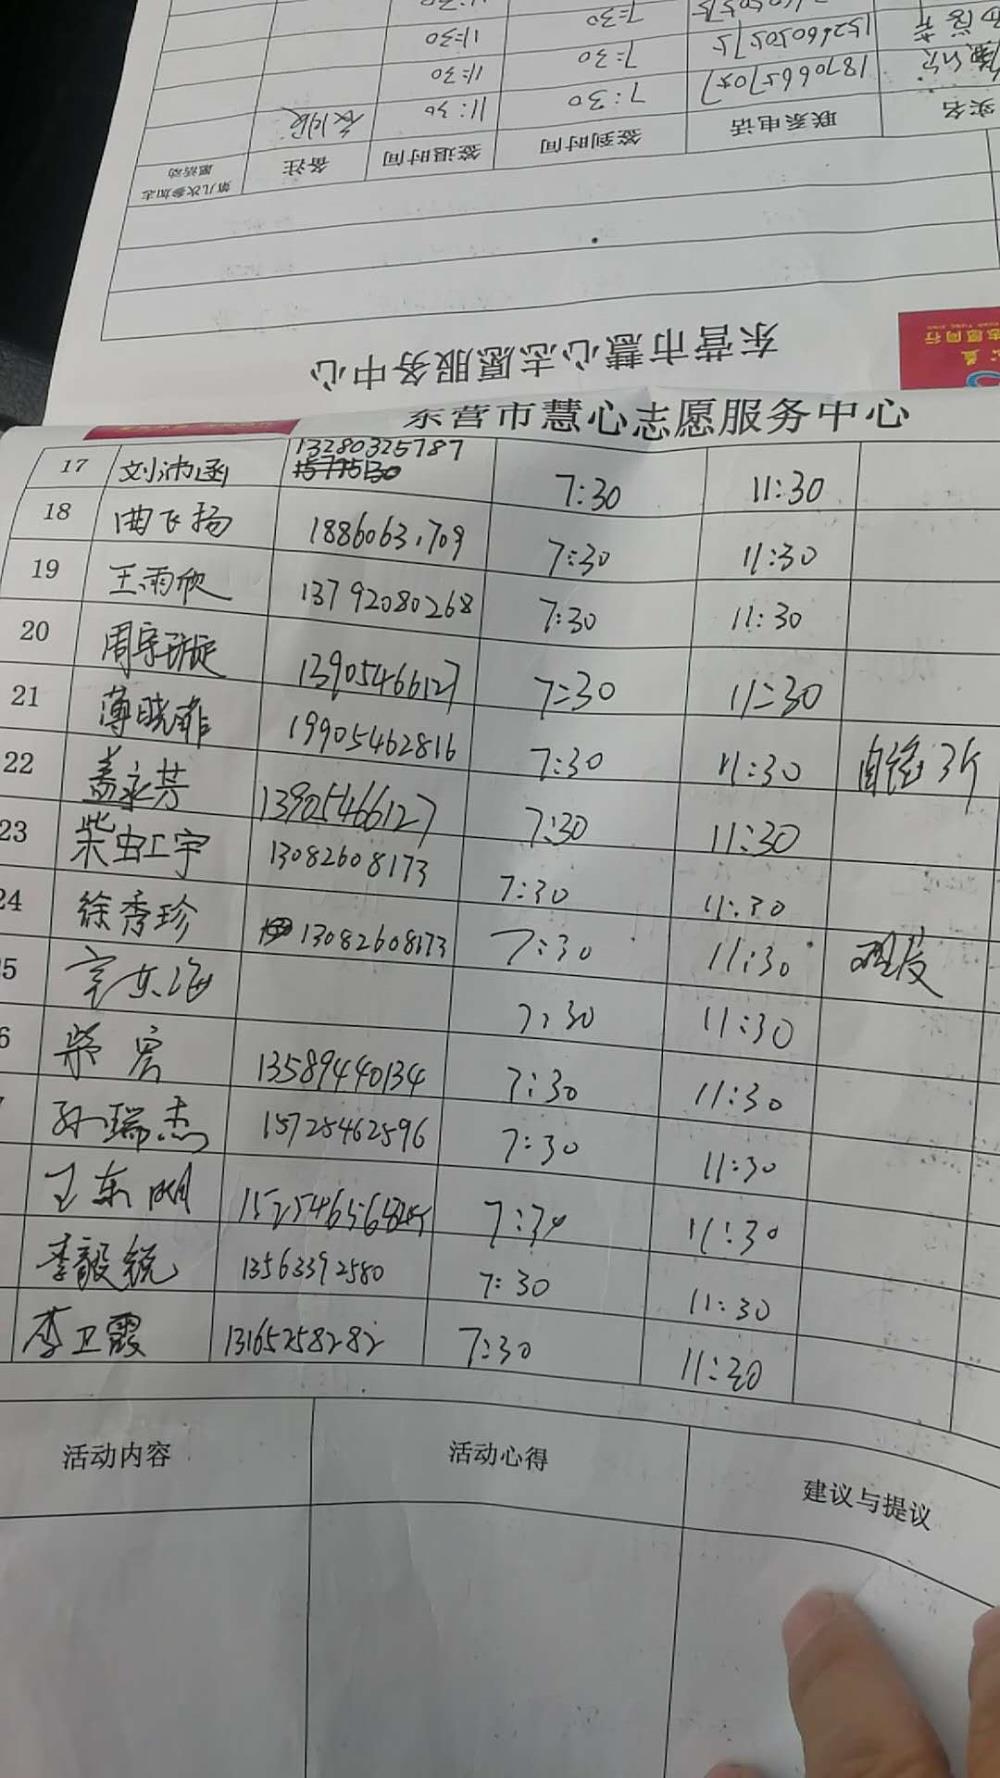 11:30
7:30
11:30
7:30
15266050575
11:30
7:30
18706657057
11:30
7:30
实名
联系电话
签到时间
签退时间
备注
第几次参加志愿活动
东营市慧心志愿服务中心
志愿同行
东营市慧心志愿服务中心
17 刘沛函 13280325787 7:30 11:30
18 曲飞扬 7:30 11:30
19 王雨欣 13792080268 7:30 11:30
20 周宇璇 13905466127 7:30 11:30
21 薄晓菲 19905462816 7:30 11:30
22 盖永芳 13905466127 7:30 11:30
23 柴虹宇 13082608173 7:30 11:30
24 徐秀珍 13082608173 7:30 11:30
5 7:30 11:30
6 13589440134 7:30 11:30
孙瑞杰 15725462596 7:30 11:30
王东明 7:30 11:30
李毅锐 13563392580 7:30 11:30
李卫霞 13165258282 7:30 11:30
活动内容 活动心得 建议与提议